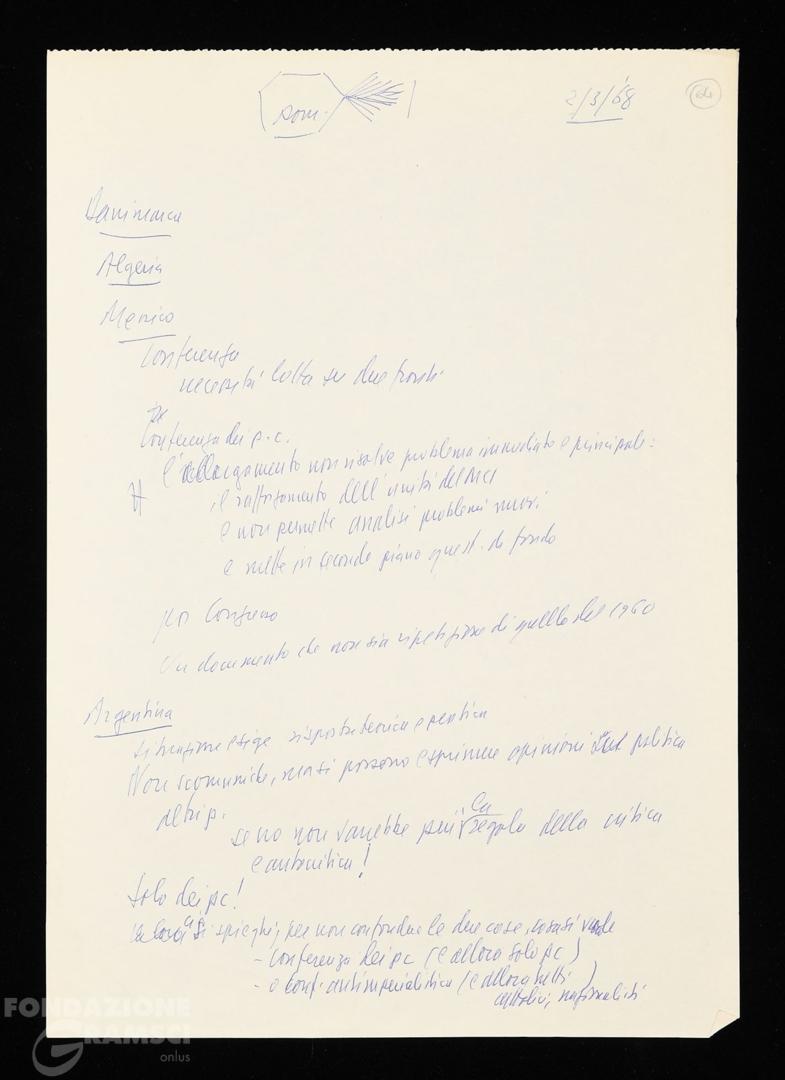 som.
2/3/'68
Danimarca
Algeria
Messico
Conferenza
necessità lotta su due fronti
Conferenza dei p.c.
l'allargamento non risolve problema immediato e principale:
il rafforzamento dell'unità del MCI
e non permette analisi problemi nuovi
e mette in secondo piano quest. di fondo
Congresso
Un documento che non sia ripetizione di quello del 1960
Argentina
situazione esige risposta teorica e pratica
Non scomuniche, ma si possono esprimere opinioni sul politica
altri p.
se no non varrebbe più la regola della critica
e autocritica!
Solo dei pc!
allora ci si spieghi, per non confondere le due cose, cosa si vuole
- conferenza dei pc (e allora solo pc)
- o conf. antimperialistica (e allora tutti)
cattolici, nazionalisti
FONDAZIONE
GRAMSCI
onlus